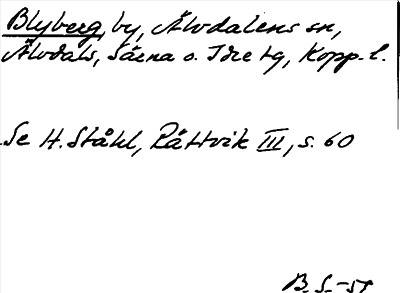 Blyberg, by, Älvdalens sn,
Älvdals, Särna o. Idre tg, Kopp. l.
Se H. Ståhl, Rättvik III, s. 60
B. S. -51